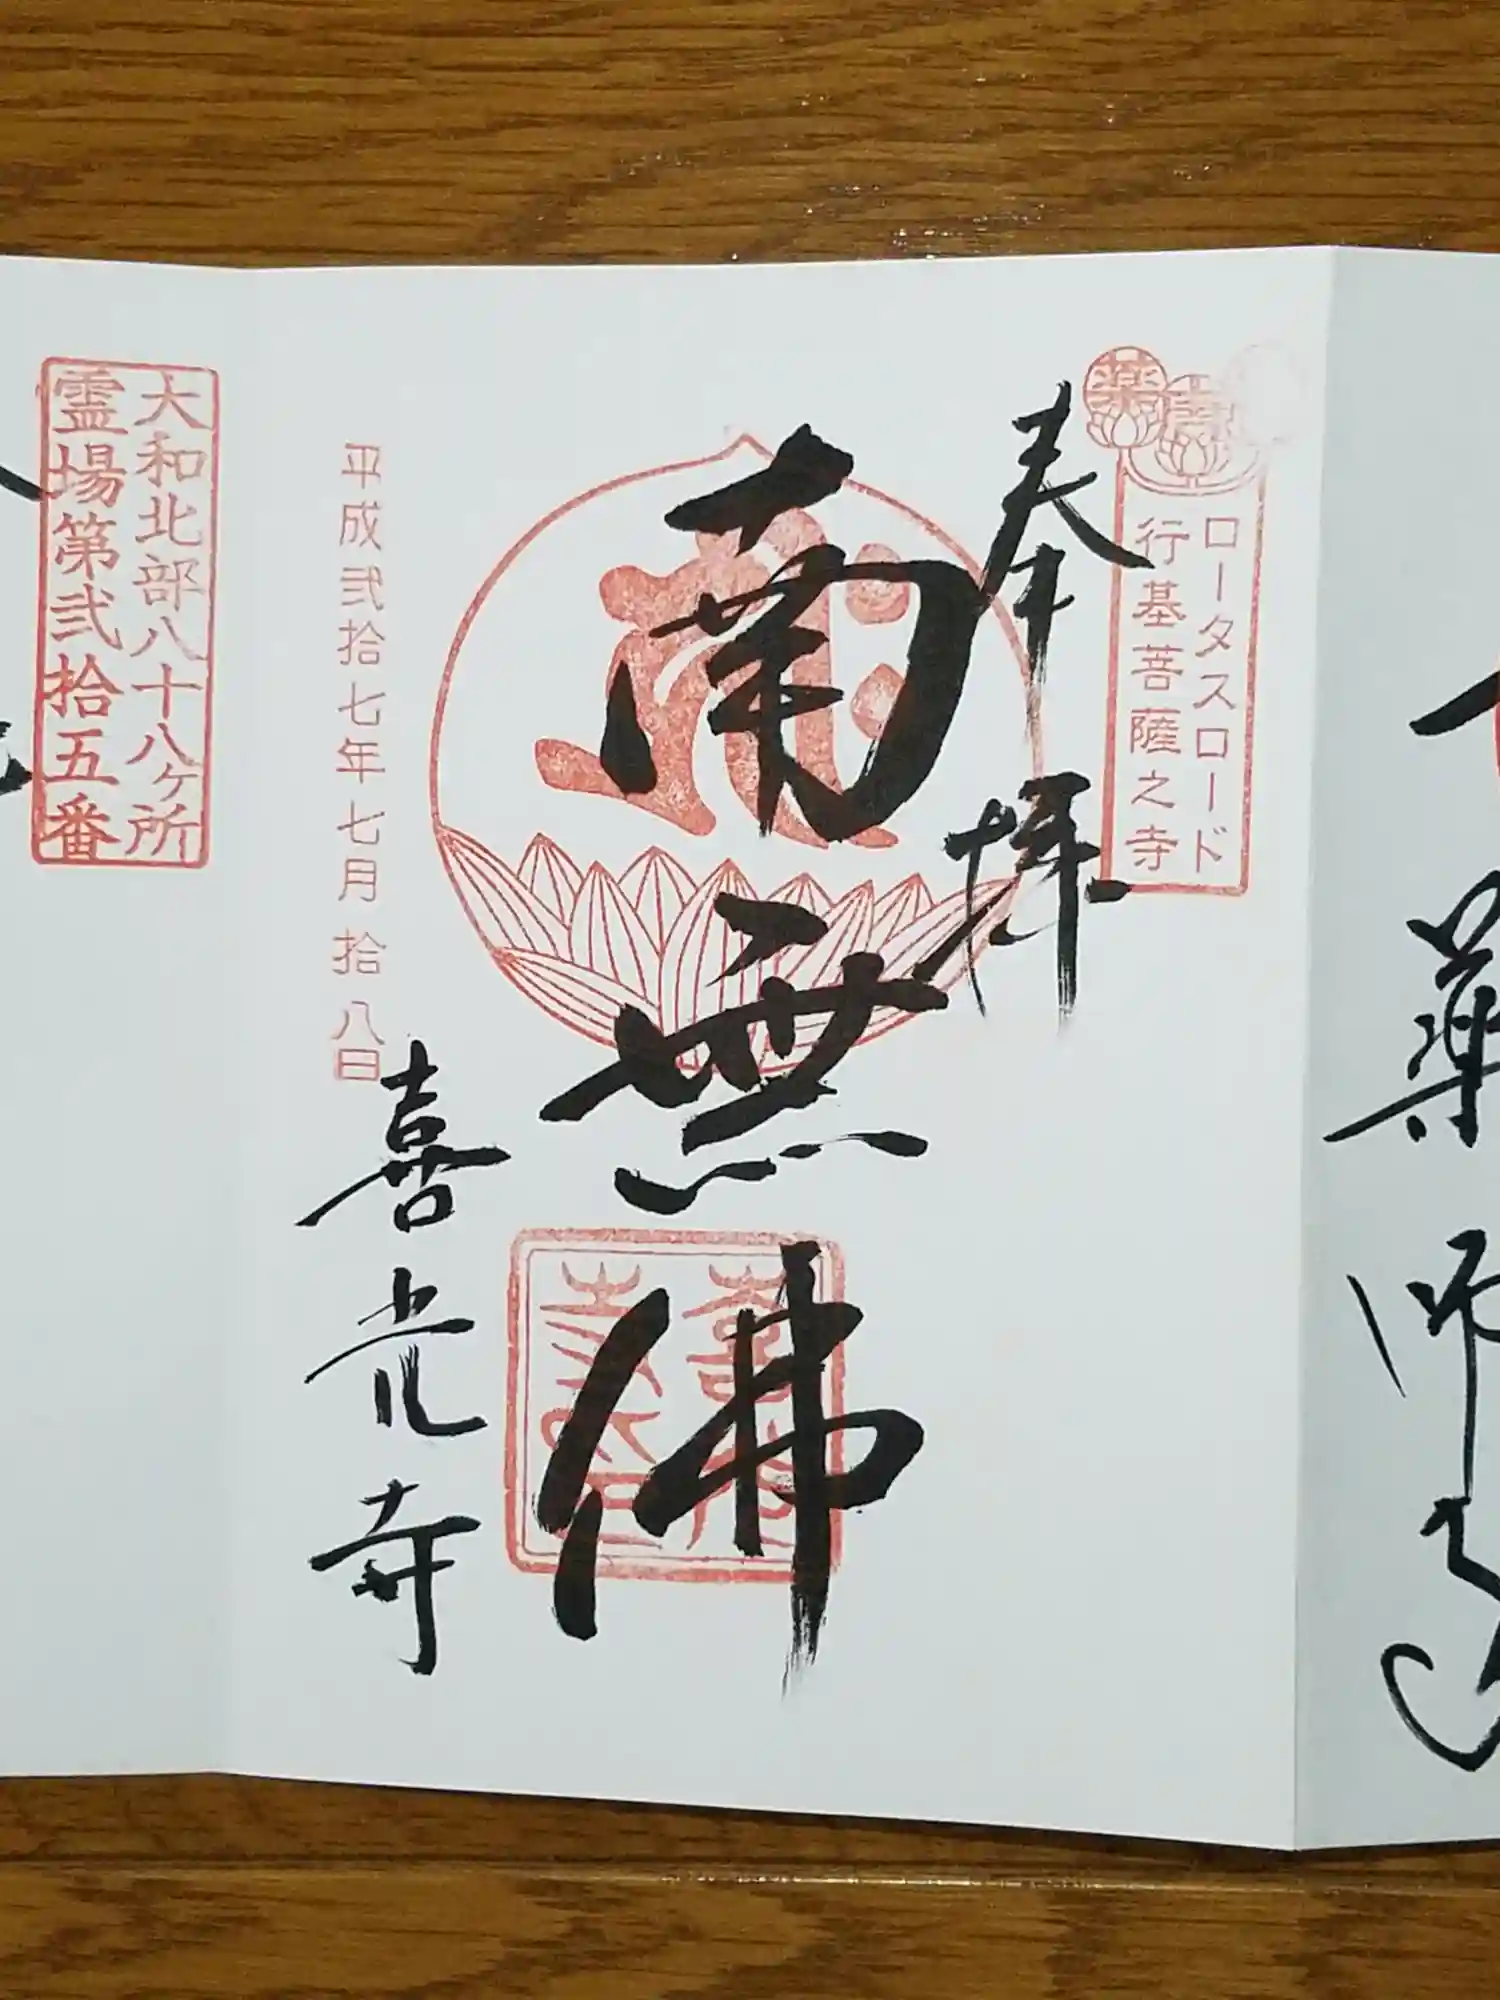 薬
ロータスロード
行基菩薩之寺
奉拝
南無佛
平成弐拾七年七月拾八日
喜光寺
喜光寺
大和北部八十八ヶ所
霊場第弐拾五番
薬師